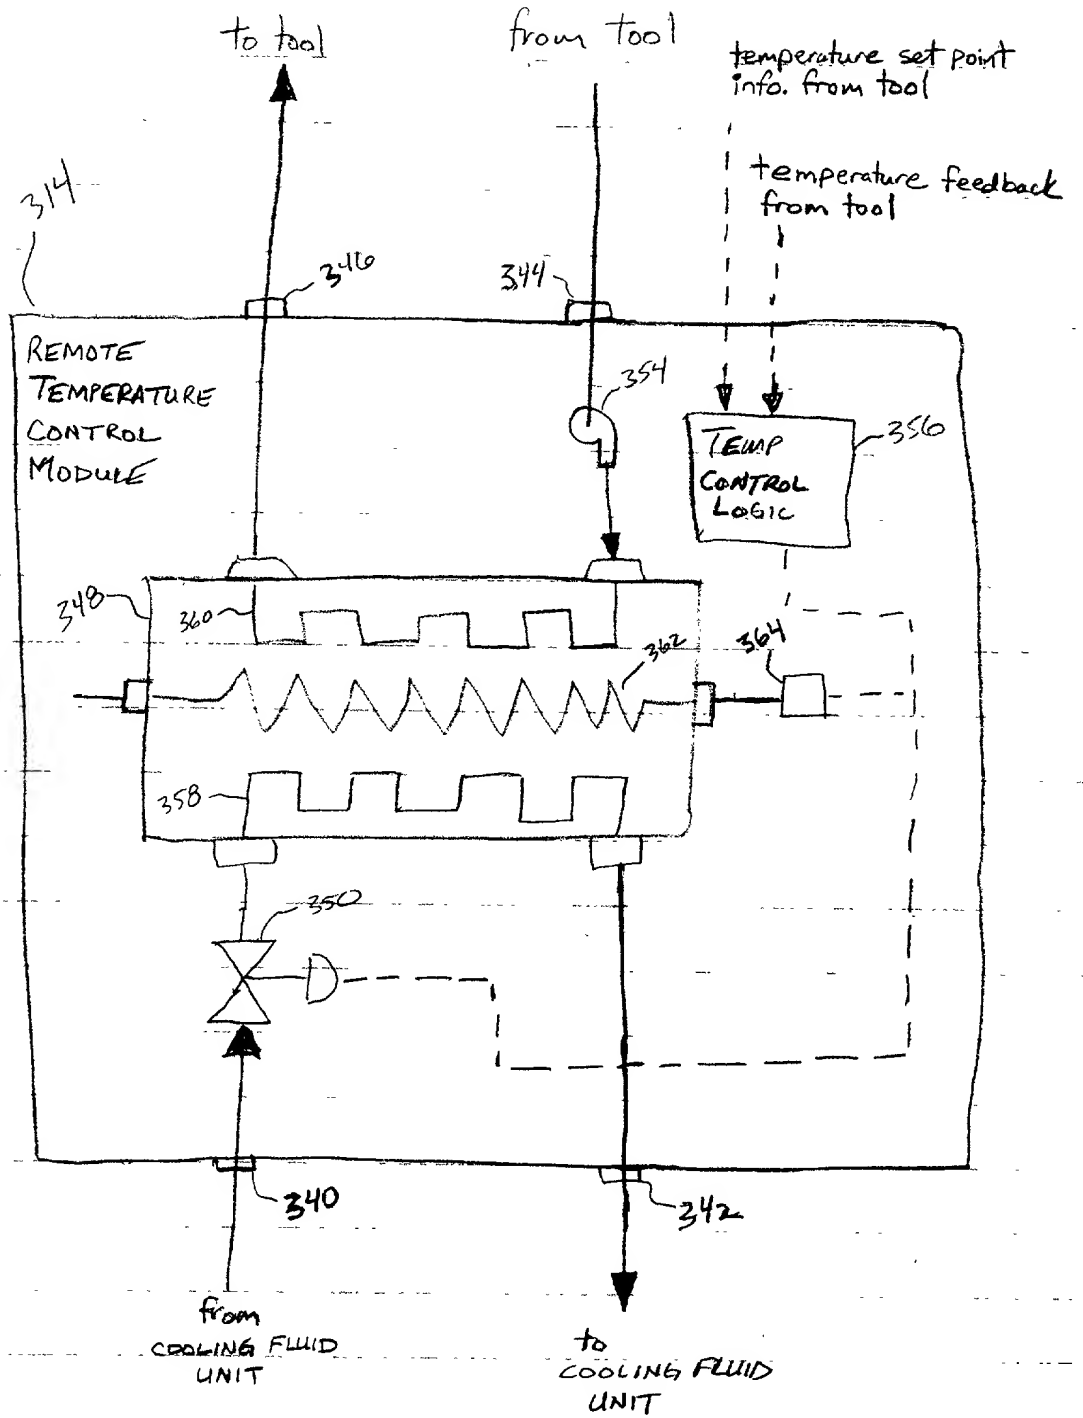 to tool
from tool
temperature set point
info. from tool
temperature feedback
from tool
314
346
344
REMOTE
TEMPERATURE
CONTROL
MODULE
354
356
TEMP
CONTROL
LOGIC
348
360
362
364
358
350
340
342
from
COOLING FLUID
UNIT
to
COOLING FLUID
UNIT